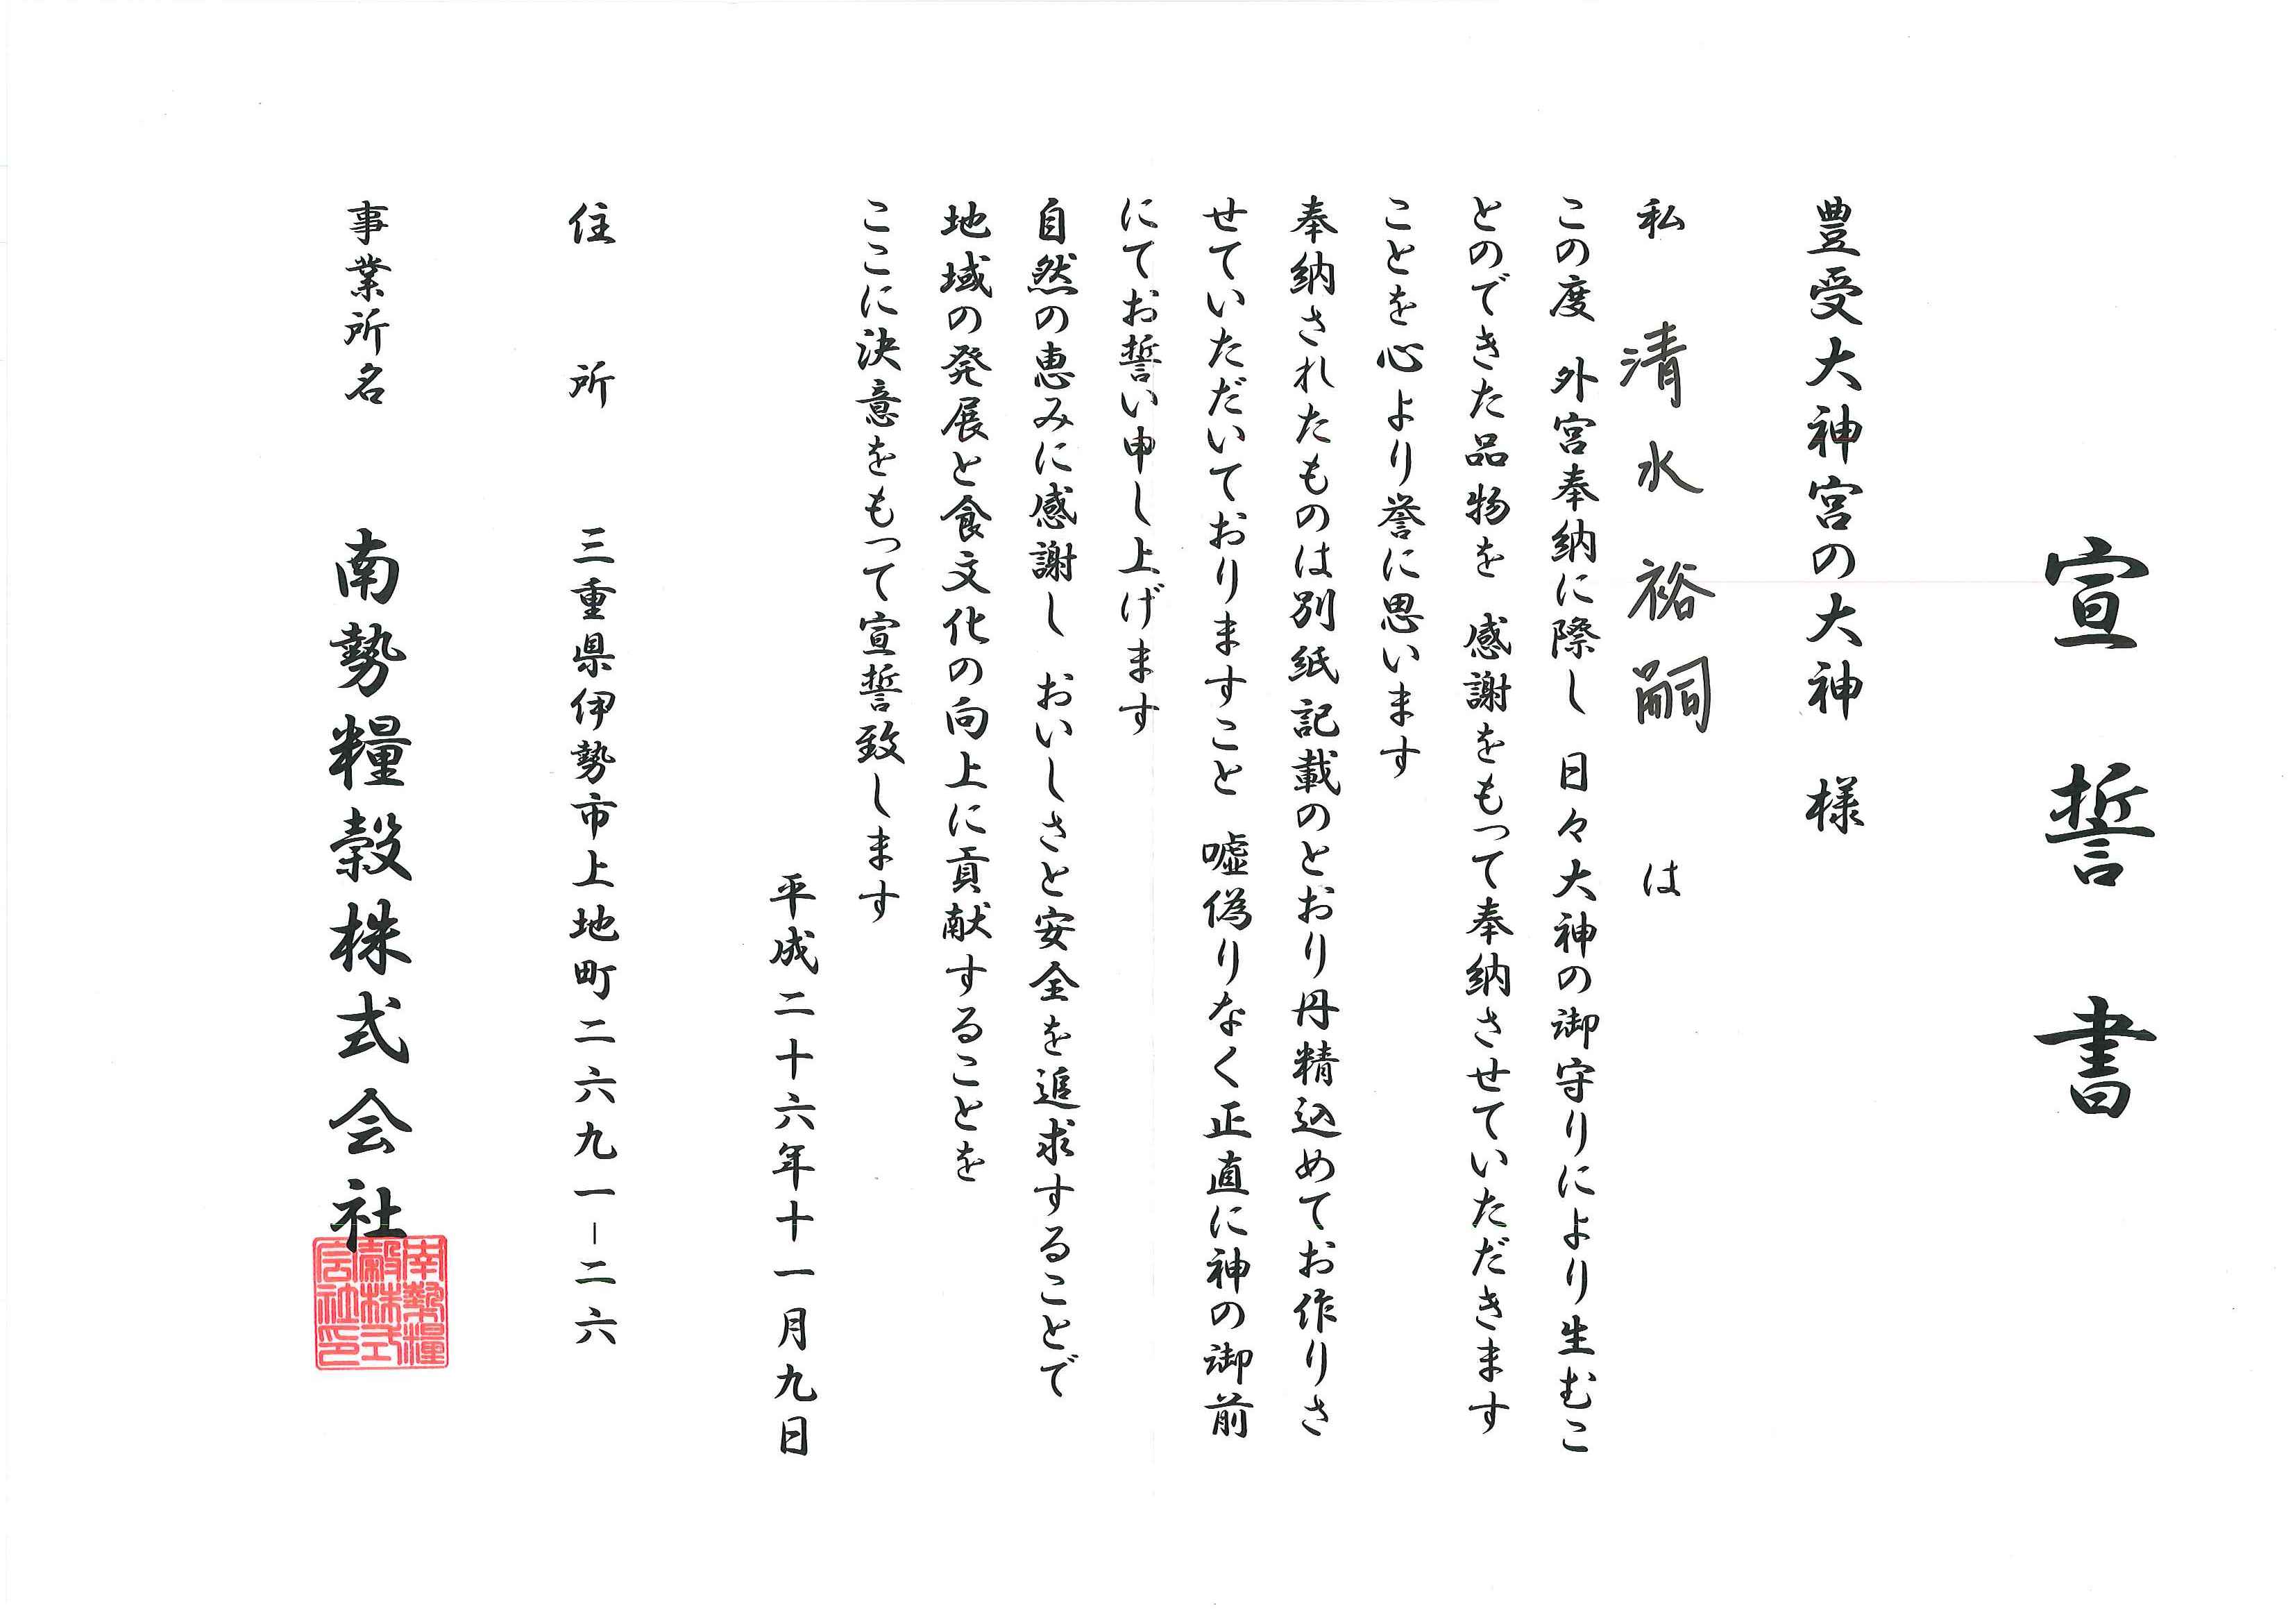 宣誓書
豊受大神宮の大神 様
私 清水裕嗣 は
この度 外宮奉納に際し 日々大神の御守りにより生むこ
とのできた品物を 感謝をもって奉納させていただきます
ことを心より誉に思います
奉納されたものは別紙記載のとおり丹精込めてお作りさ
せていただいておりますこと 嘘偽りなく正直に神の御前
にてお誓い申し上げます
自然の恵みに感謝し おいしさと安全を追求することで
地域の発展と食文化の向上に貢献することを
ここに決意をもって宣誓致します
平成二十六年十一月九日
住所 三重県伊勢市上地町二六九一-二六
事業所名 南勢糧穀株式会社
南勢糧
穀株式
会社印